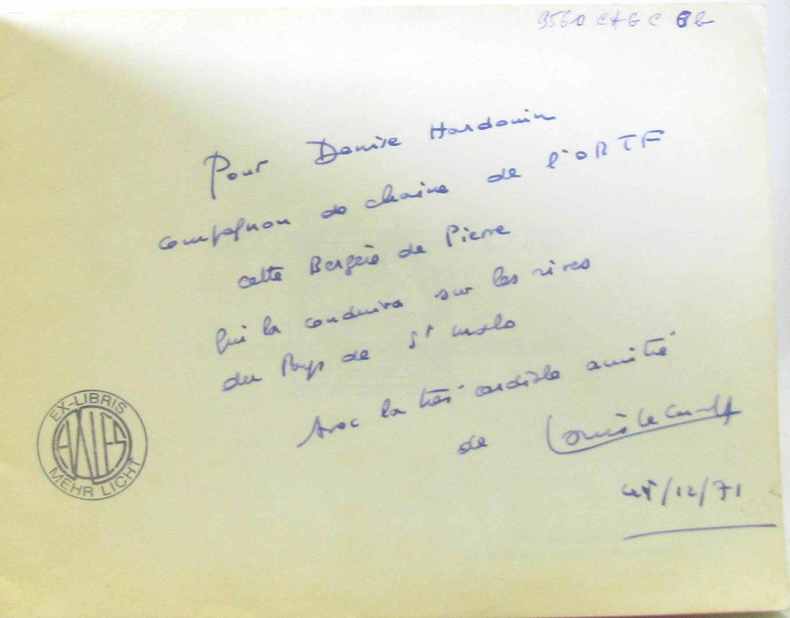 Pour Denise Hardouin
compagnon de chaine de l'ORTF
cette Bergère de Pierre
qui la conduira sur les rives
du Pays de St Malo
Avec la très cordiale amitié
de
/12/71
EX-LIBRIS
MEHR LICHT